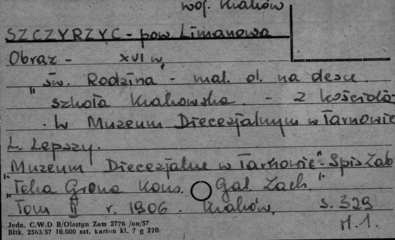 woj. Kraków
SZCZYRZYC - pow Limanowa
Obraz - XVI w,
"św. Rodzina" - mal. ol. na desce.
szkoła krakowska. - z kościoła
. w Muzeum Diecezjalnym w Tarnowie
L. Lepszy.
"Muzeum Diecezjalne w Tarnowie" - Spis Zab
"Teka Grona Kons. Gal Zach."
Tom II r. 1906. Kraków, s. 329
Jedn. C.W.D B/Olsztyn Zam 2776 /on/57
Bltk. 2563/57 10.000 szt. karton kl. 7 g 220.